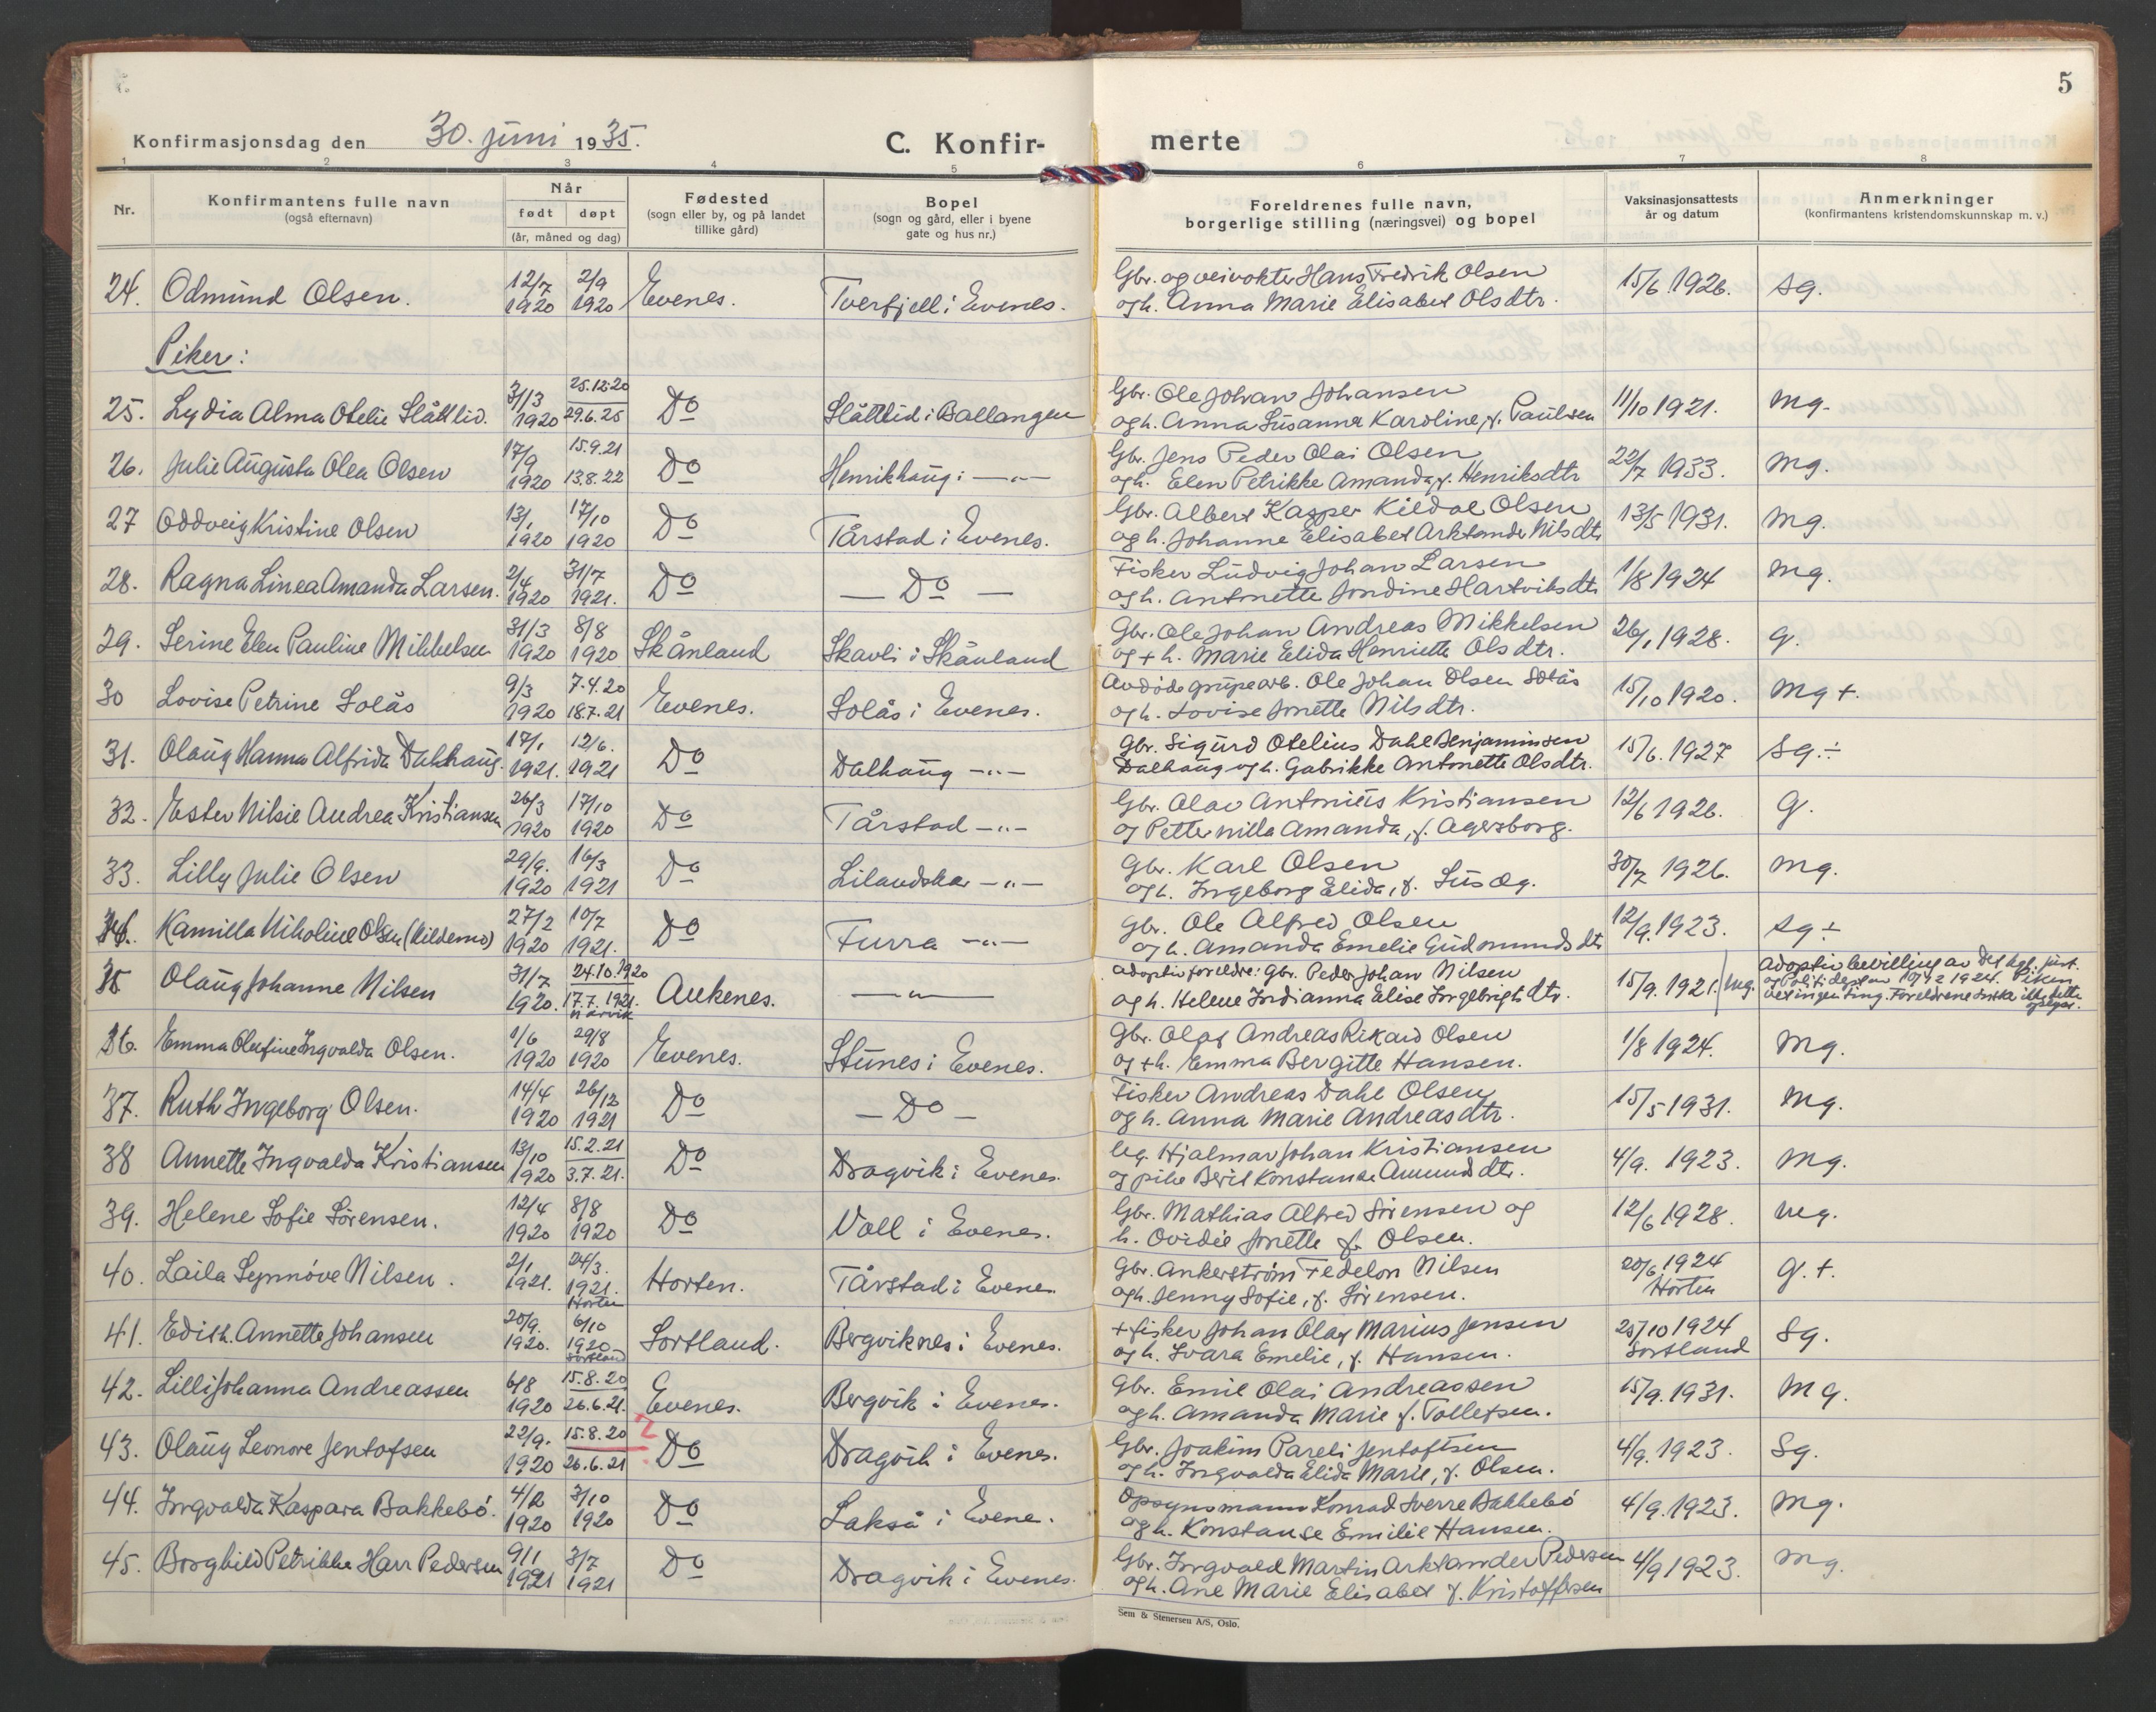 5
Konfirmasjonsdag den 30. juni 1935.
C. Konfir-
merte
1 2 3 4 5 6 7 8
Nr.
Konfirmantens fulle navn
(også efternavn)
Når
født døpt
(år, måned og dag)
Fødested
(sogn eller by, og på landet
tillike gård)
Bopel
(sogn og gård, eller i byene
gate og hus nr.)
Foreldrenes fulle navn,
borgerlige stilling (næringsvei) og bopel
Vaksinasjonsattests
år og datum
Anmerkninger
(konfirmantens kristendomskunnskap m. v.)
12/7 2/9 Gbr. og veivokter Hans Fredrik Olsen
24. Odmund Olsen. 1920 1920 Evenes. Tverfjell i Evenes. og h. Anna Marie Elisabet Olsdtr. 15/6.1926. sg.
Piker:
31/3 25.12.20 Gbr. Ole Johan Johansen
25. Lydia Alma Otelie Slåttlid. 1920 29.6.25 Do Slåttlid i Ballangen og h. Anna Susanna Karoline, f. Paulsen 11/10 1921. mg.
17/9 15.9.21 Gbr. Jens Peder Olai Olsen
26. Julie Augusta Olea Olsen 1920 13.8.22 Do Henrikhaug i —"— og h. Elen Petrikke Amanda, f. Henriksdtr 22/7 1933. mg.
13/1 17/10 Gbr. Albert Kasper Kildal Olsen
27 Oddveig Kristine Olsen 1920 1920 Do Tårstad i Evenes. og h. Johanne Elisabet Arktande Nilsdtr 13/5 1931. mg.
2/4 31/7 Fisker Ludvig Johan Larsen
28. Ragna Linea Amanda Larsen. 1920 1921. Do — Do — og h. Antonette Jondine Hartviksdtr 1/8 1924 mg.
31/3 8/8 Gbr. Ole Johan Andreas Mikkelsen
29. Serine Elen Pauline Mikkelsen 1920 1920 Skånland Skavli i Skånland og + h. Marie Elida Henriette Olsdtr. 26/1 1928. g.
9/3 7.4.20 Avdøde grupearb. Ole Johan Olsen Solås
30 Lovise Petrine Solås 1920 18.7.21 Evenes. Solås i Evenes. og h. Lovise Jonette Nilsdtr. 15/10 1920. mg +.
17/1 12/6. Gbr. Sigurd Otelius Dahl Benjaminsen
31. Olaug Hanna Alfrida Dalhaug. 1921. 1921 Do Dalhaug —"— Dalhaug og h. Gabrikke Antonette Olsdtr. 15/6.1927 sg.÷
26/3 17/10 Gbr. Olav Antonius Kristiansen
32. Ester Nilsie Andrea Kristiansen 1920 1920 Do Tårstad —"— og Petternilla Amanda, f. Agersborg. 12/6 1926. g.
29/9. 16/3 Gbr. Karl Olsen
33. Lilly Julie Olsen 1920 1921 Do Lilandskar —"— og h. Ingeborg Elida, f. 30/7 1926. mg.
27/2 10/7 Gbr. Ole Alfred Olsen
34. Kamilla Nikoline Olsen (Kildemo) 1920 1921. Do Furra —"— og h. Amanda Emelie Gudmundsdtr 12/9.1923. sg ÷
31/7 24.10.1920 adoptivforeldre: Gbr. Peder Johan Nilsen
35 Olaug Johanne Nilsen 1920. 17.7.1921. Narvik Ankenes. —"— og h. Helene Jordianna Elise Ingebrigtsdtr. 15/9.1921. mg.
Adoptivbevilling av Det kgl. just.
og Politidept av 10/12 1924. Piken
vet ingenting. Foreldrene ikke dette
1/6 29/8 Gbr. Olaf Andreas Rikard Olsen
36. Emma Olufine Ingvalda Olsen. 1920 1920 Evenes. Stunes i Evenes. og + h. Emma Bergitte Hansen. 1/8 1924. mg.
14/4 26/12 Fisker Andreas Dahl Olsen
37. Ruth Ingeborg Olsen. 1920 1921 Do — Do — og h. Anna Marie Andreasdtr. 15/5 1931. mg.
13/10 15.2.21 Ug. Hjalmar Johan Kristiansen
38 Annette Ingvalda Kristiansen 1920 3.7.21. Do Dragvik i Evenes. og pike Berit Konstanse Amundsdtr. 4/9. 1923. mg.
12/4 8/8 Gbr. Mathias Alfred Sørensen og
39. Helene Sofie Sørensen. 1920 1920 Do Voll i Evenes. h. Ovidie Jonette f. Olsen. 12/6 1928. ug.
2/1 24/3. Gbr. Ankerstrøm Fedelon Nilsen
40. Laila Synnøve Nilsen. 1921. 1921. Horten Horten. Tårstad i Evenes. og h. Jenny Sofie, f. Sørensen. 20/6 1924 Horten g. +.
20/9. 6/10 + fisker Johan Olaf Marius Jensen
41. Edith. Annette Johansen 1920. 1920 Sortland Sortland. Bergviknes i Evenes. og h. Svara Emelie, f. Hansen. 25/10 1924 Sortland Sg.
6/8 15.8.20 Gbr. Emil Olai Andreassen
42. Lilli Johanna Andreassen 1920 26.6.21. Evenes. Bergvik i Evenes. og h. Amanda Marie f. Tollefsen. 15/9.1931. mg.
22/9. 15.8.20 ? Gbr. Joakim Pareli Jentoftsen
43. Olaug Leonore Jentofsen 1920 26.6.21 Do Dragvik i Evenes. og h. Ingvalda Elida Marie, f. Olsen. 4/9.1923. Sg.
4/2 3/10 Opsynsmann Konrad Sverre Bakkebø
44. Ingvalda Kaspara Bakkebø. 1920 1920 Do Lakså i Evene. og h. Konstanse Emilie Hansen. 4/9.1923. mg.
9/1 3/7 Gbr. Ingvald Martin Arktander Pedersen
45. Borghild Petrikke Harr Pedersen 1921 1921 Do Dragvik i Evenes. og h. Ane Marie Elisabet f. Kristoffersen 4/9 1923. mg.
Sem & Stenersen A/S, Oslo.